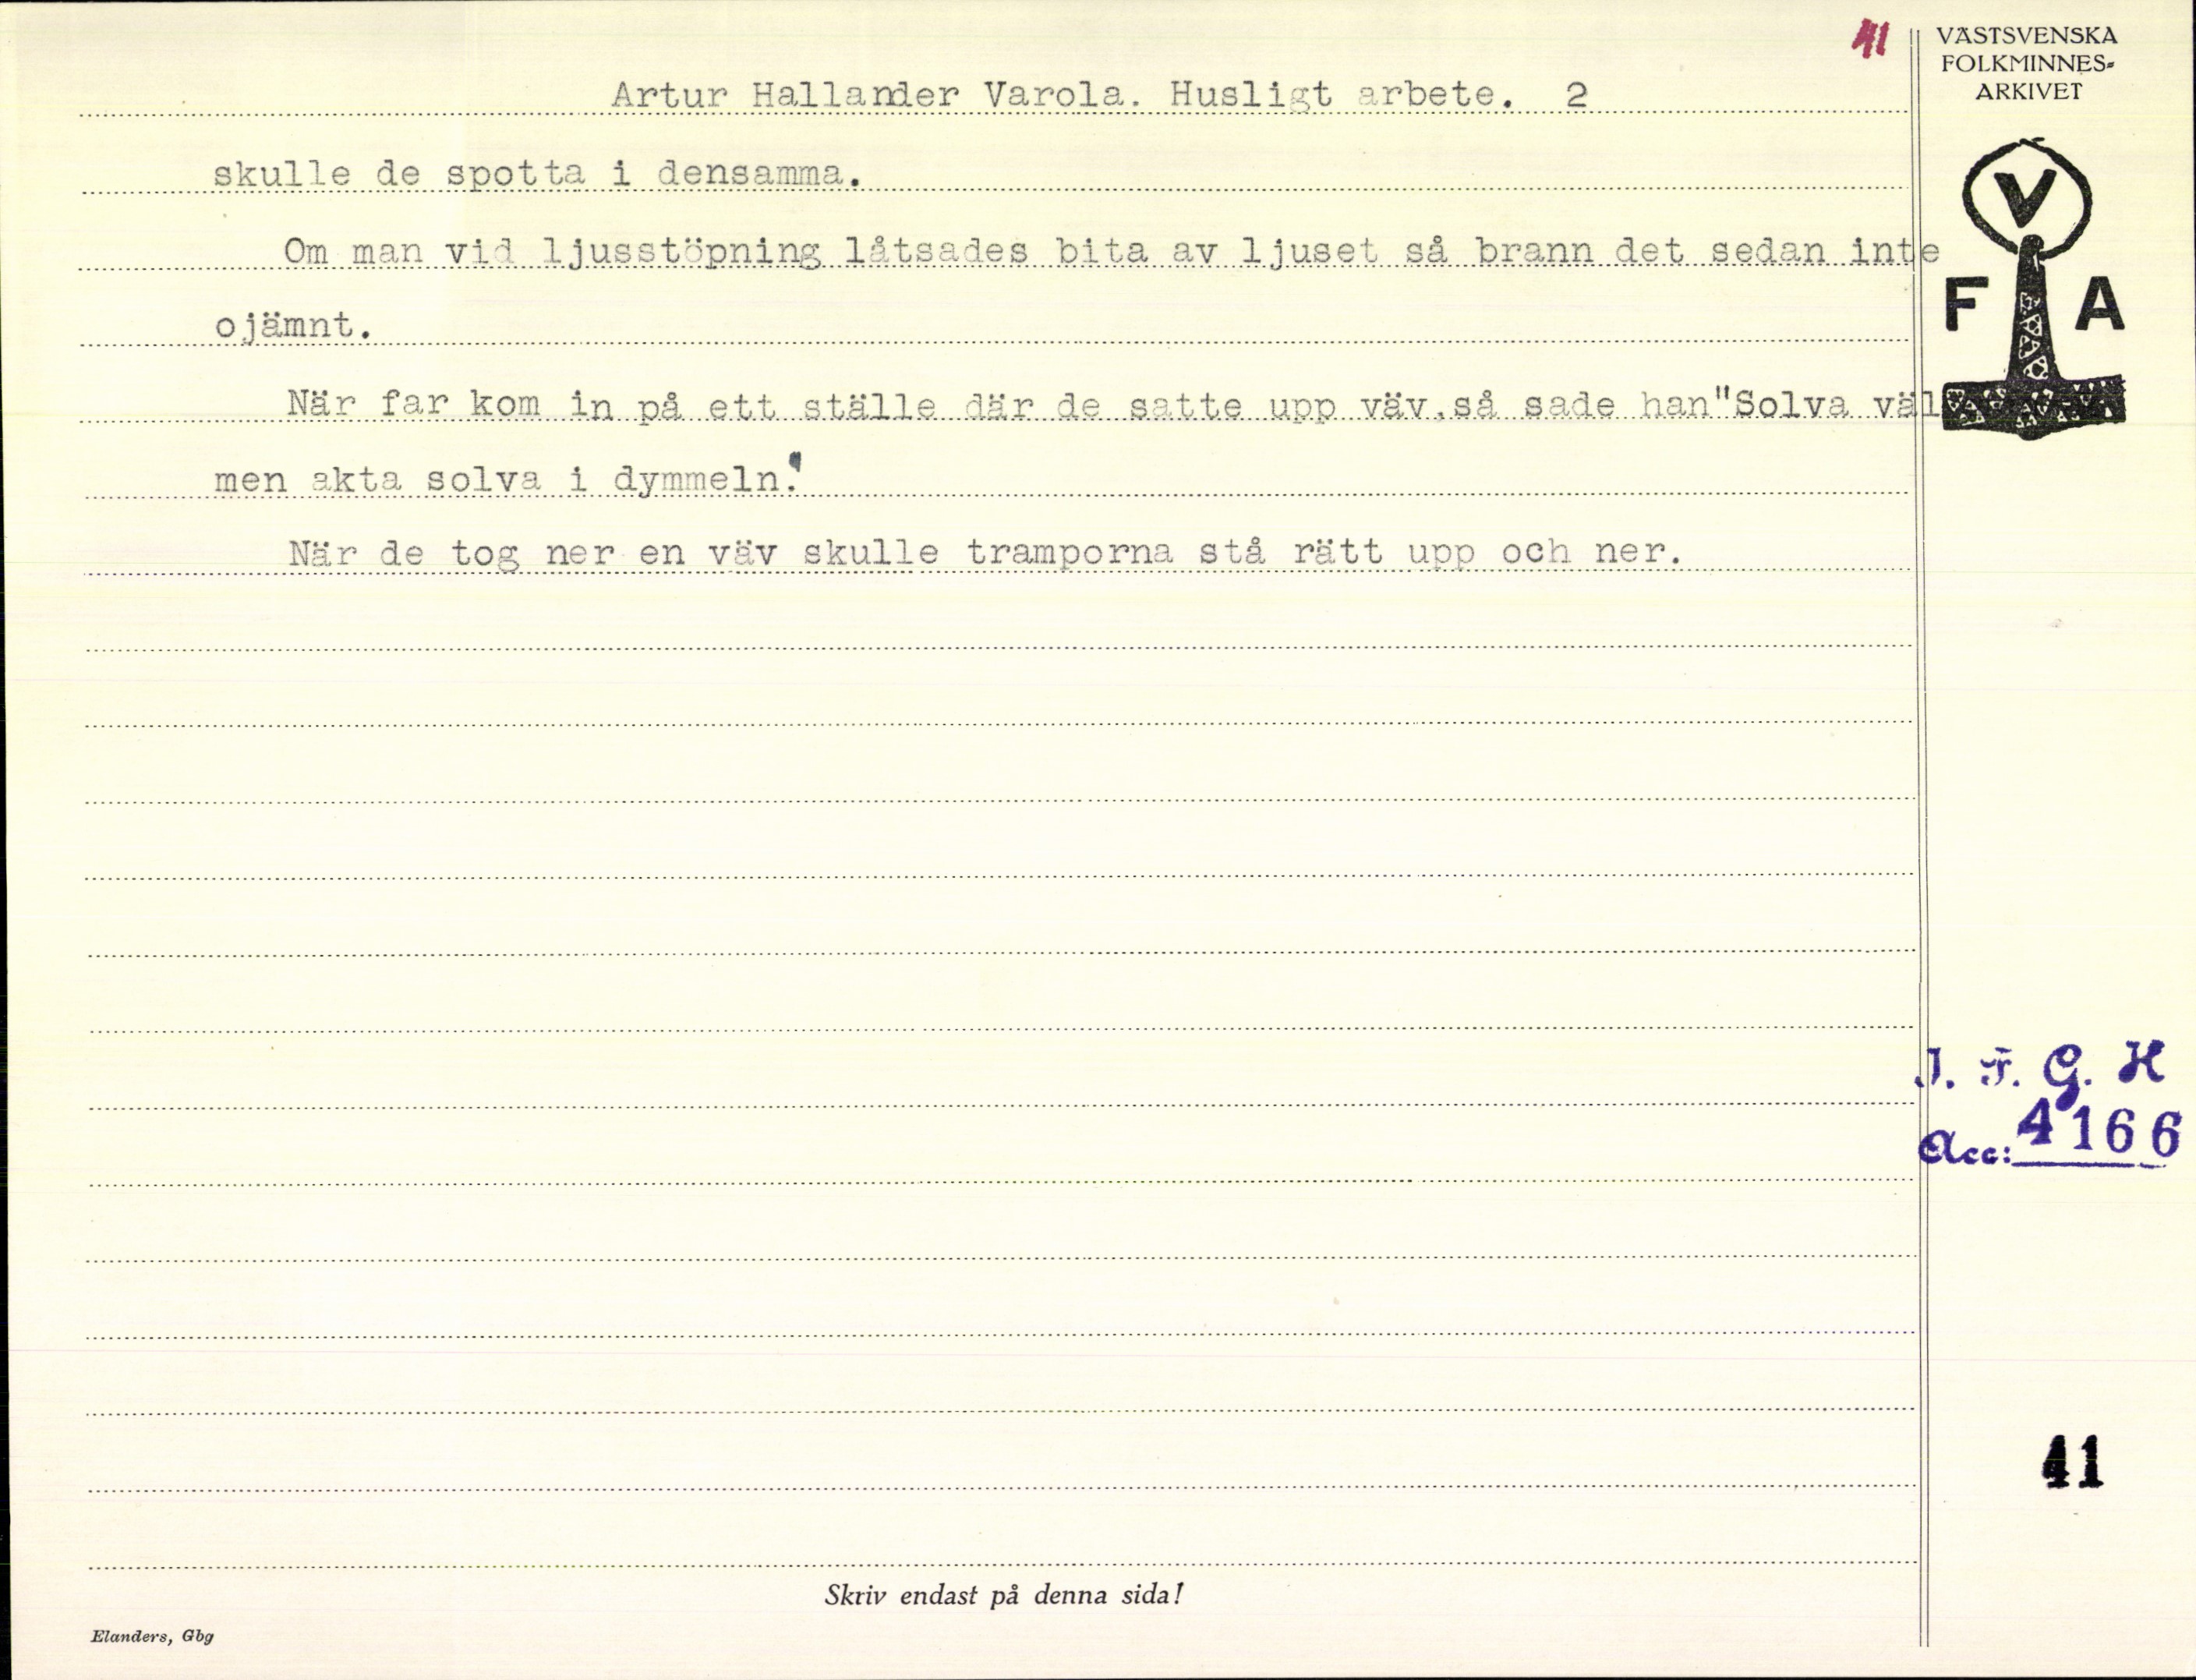 41
VÄSTSVENSKA
FOLKMINNES-
ARKIVET
Artur Hallander Varola. Husligt arbete. 2
skulle de spotta i densamma.
Om man vid ljusstöpning låtsades bita av ljuset så brann det sedan inte
ojämnt.
När far kom in på ett ställe där de satte upp väv,så sade han"Solva väl
men akta solva i dymmeln."
När de tog ner en väv skulle tramporna stå rätt upp och ner.
V
F A
I. F. G. H
Acc: 4166
41
Skriv endast på denna sida!
Elanders, Gbg